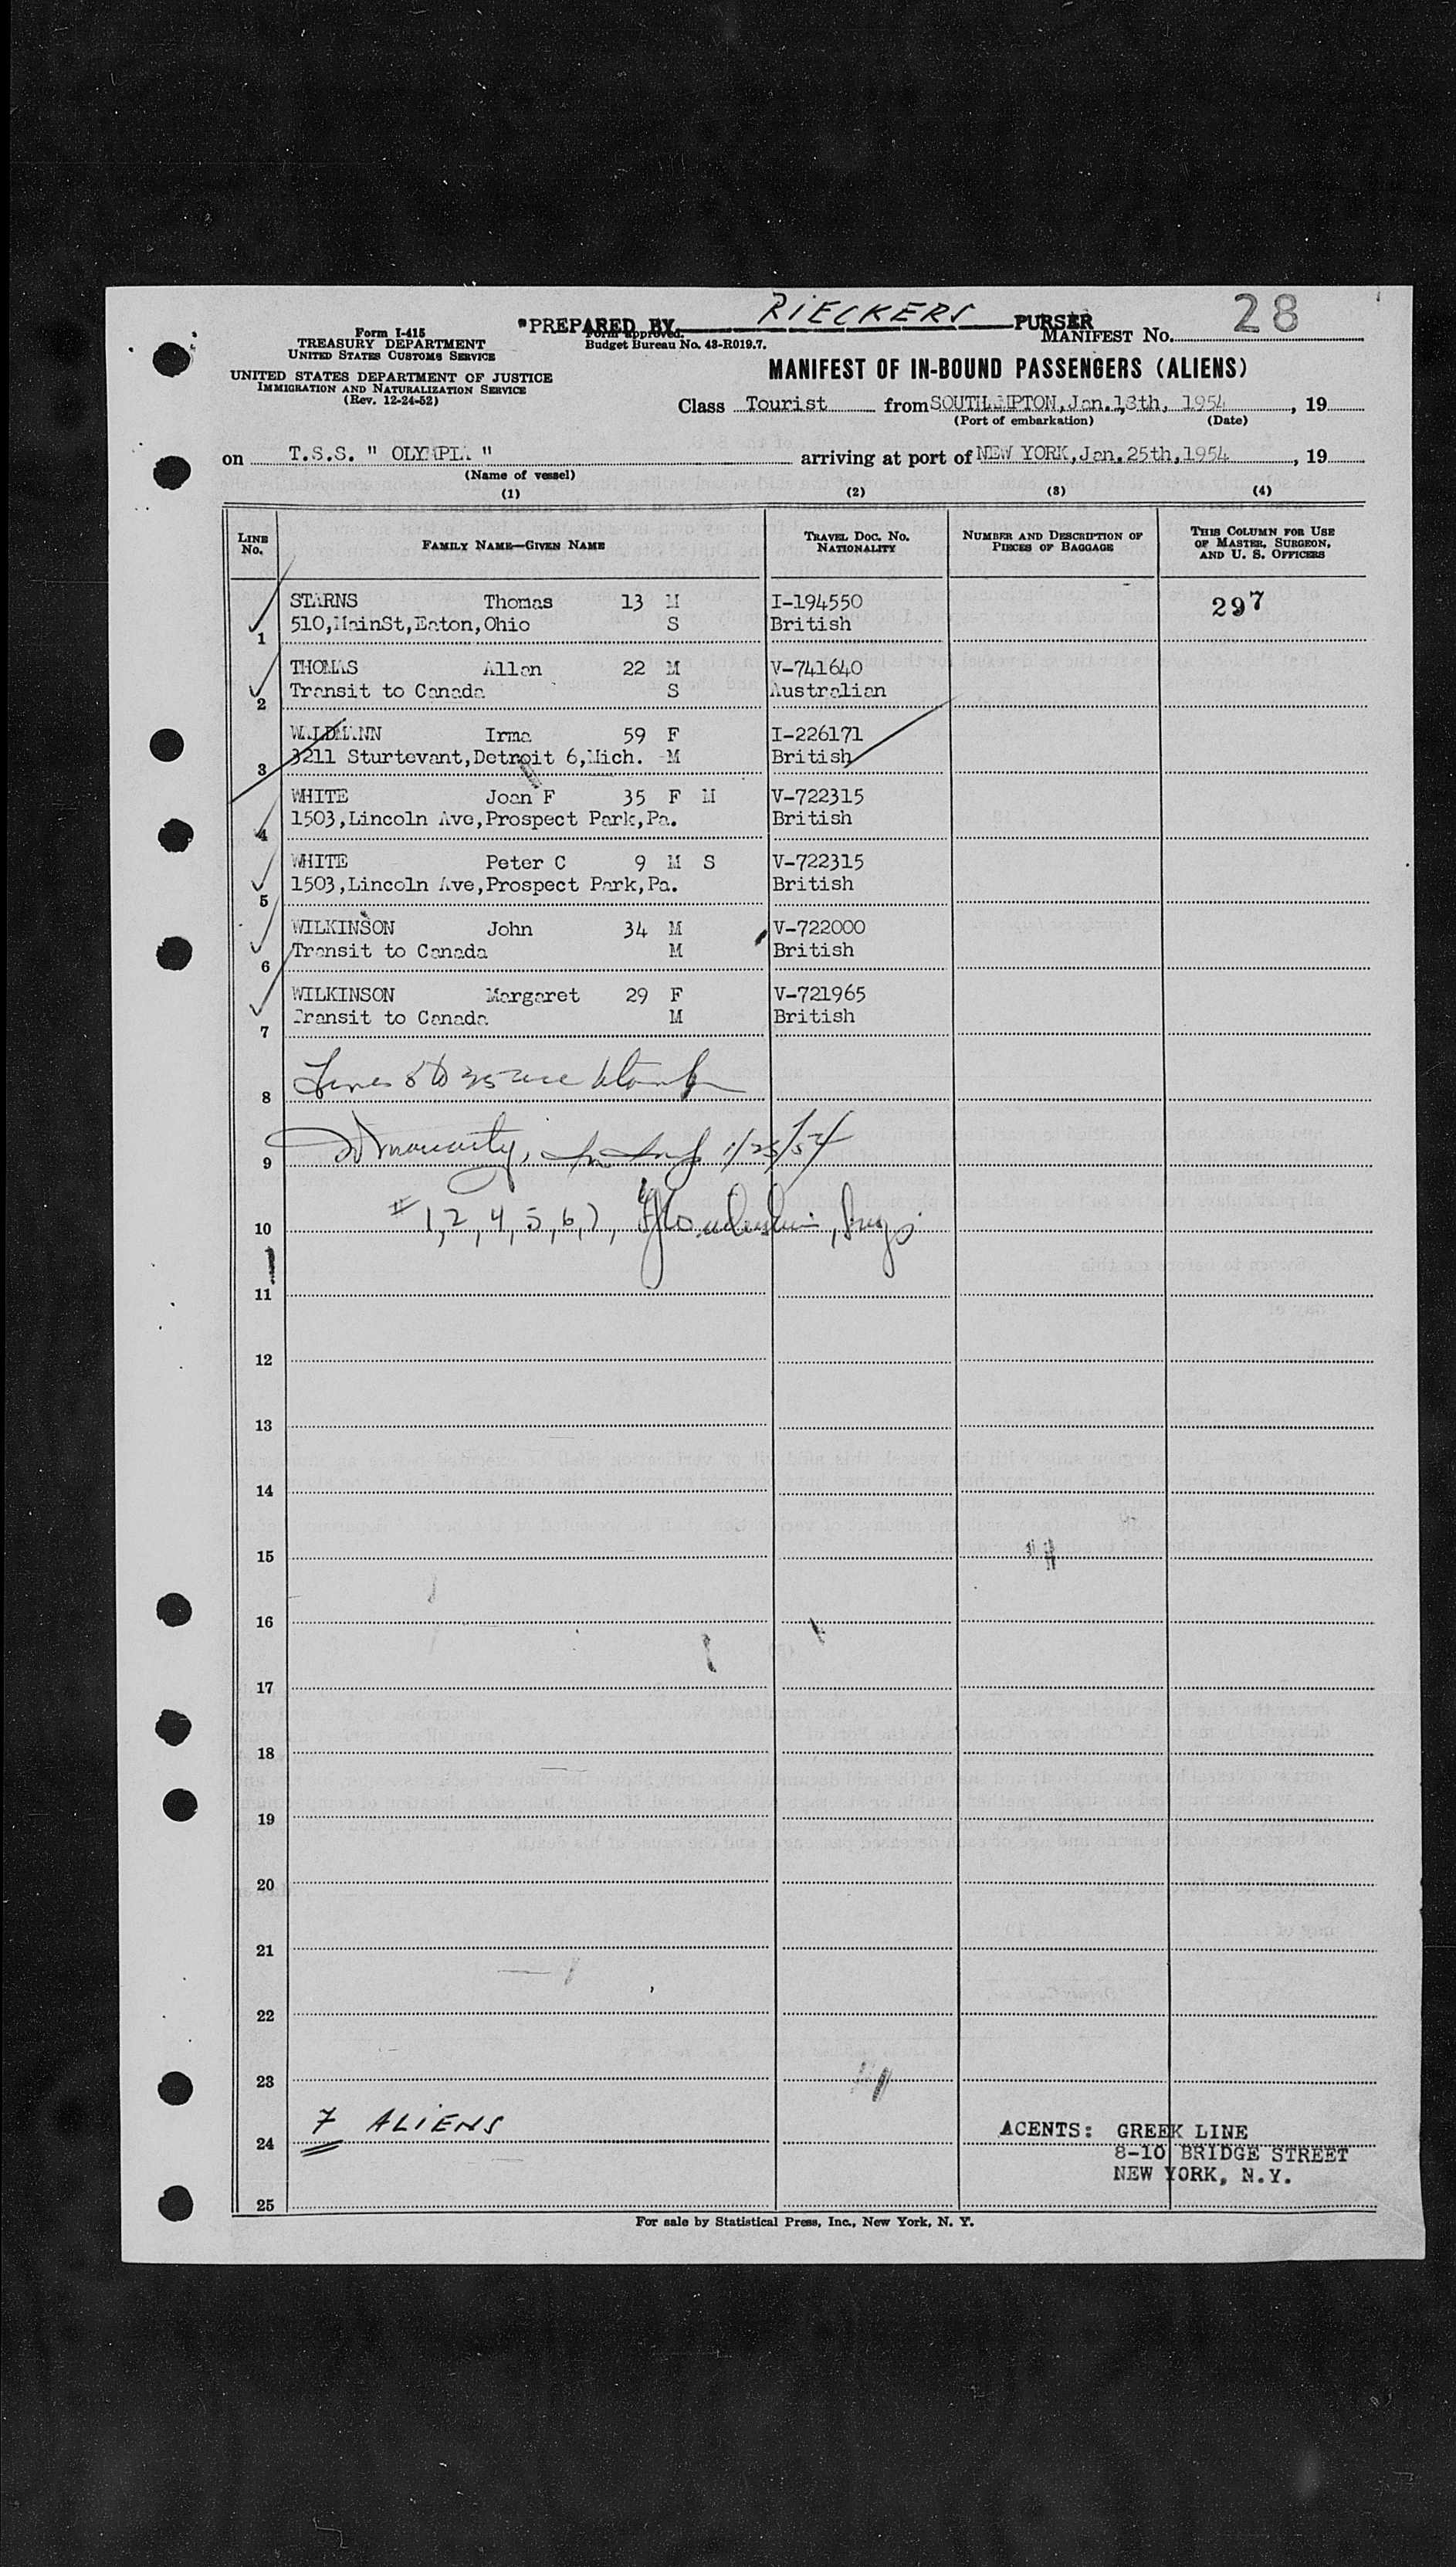 Form I-415
TREASURY DEPARTMENT
UNITED STATES CUSTOMS SERVICE
UNITED STATES DEPARTMENT OF JUSTICE
IMMIGRATION AND NATURALIZATION SERVICE
(Rev. 12-24-52)
*PREPARED BY RIECKERS PURSER
Form approved.
Budget Bureau No. 43-R019.7.
MANIFEST No. 28
MANIFEST OF IN-BOUND PASSENGERS (ALIENS)
Class Tourist from SOUTHAMPTON, Jan. 18th, 1954, 19
(Port of embarkation) (Date)
on T.S.S. " OLYMPIA " arriving at port of NEW YORK, Jan. 25th, 1954, 19
(Name of vessel)
(1) (2) (3) (4)
LINE No. FAMILY NAME—GIVEN NAME TRAVEL DOC. NO. NATIONALITY NUMBER AND DESCRIPTION OF PIECES OF BAGGAGE THIS COLUMN FOR USE OF MASTER, SURGEON, AND U. S. OFFICERS
STARNS Thomas 13 M I-194550 297
1 510,MainSt,Eaton,Ohio S British
THOMAS Allen 22 M V-741640
2 Transit to Canada S Australian
WALDMANN Irma 59 F I-226171
3 3211 Sturtevant,Detroit 6,Mich. M British
WHITE Joan F 35 F M V-722315
4 1503,Lincoln Ave,Prospect Park,Pa. British
WHITE Peter C 9 M S V-722315
5 1503,Lincoln Ave,Prospect Park,Pa. British
WILKINSON John 34 M V-722000
6 Transit to Canada M British
WILKINSON Margaret 29 F V-721965
7 Transit to Canada M British
8 Lines 8 to 25 are blank
9 1/25/54
10 # 1, 2, 4, 5, 6, 7,
11
12
13
14
15
16
17
18
19
20
21
22
23
24 7 ALIENS
AGENTS: GREEK LINE
8-10 BRIDGE STREET
NEW YORK, N.Y.
25
For sale by Statistical Press, Inc., New York, N. Y.